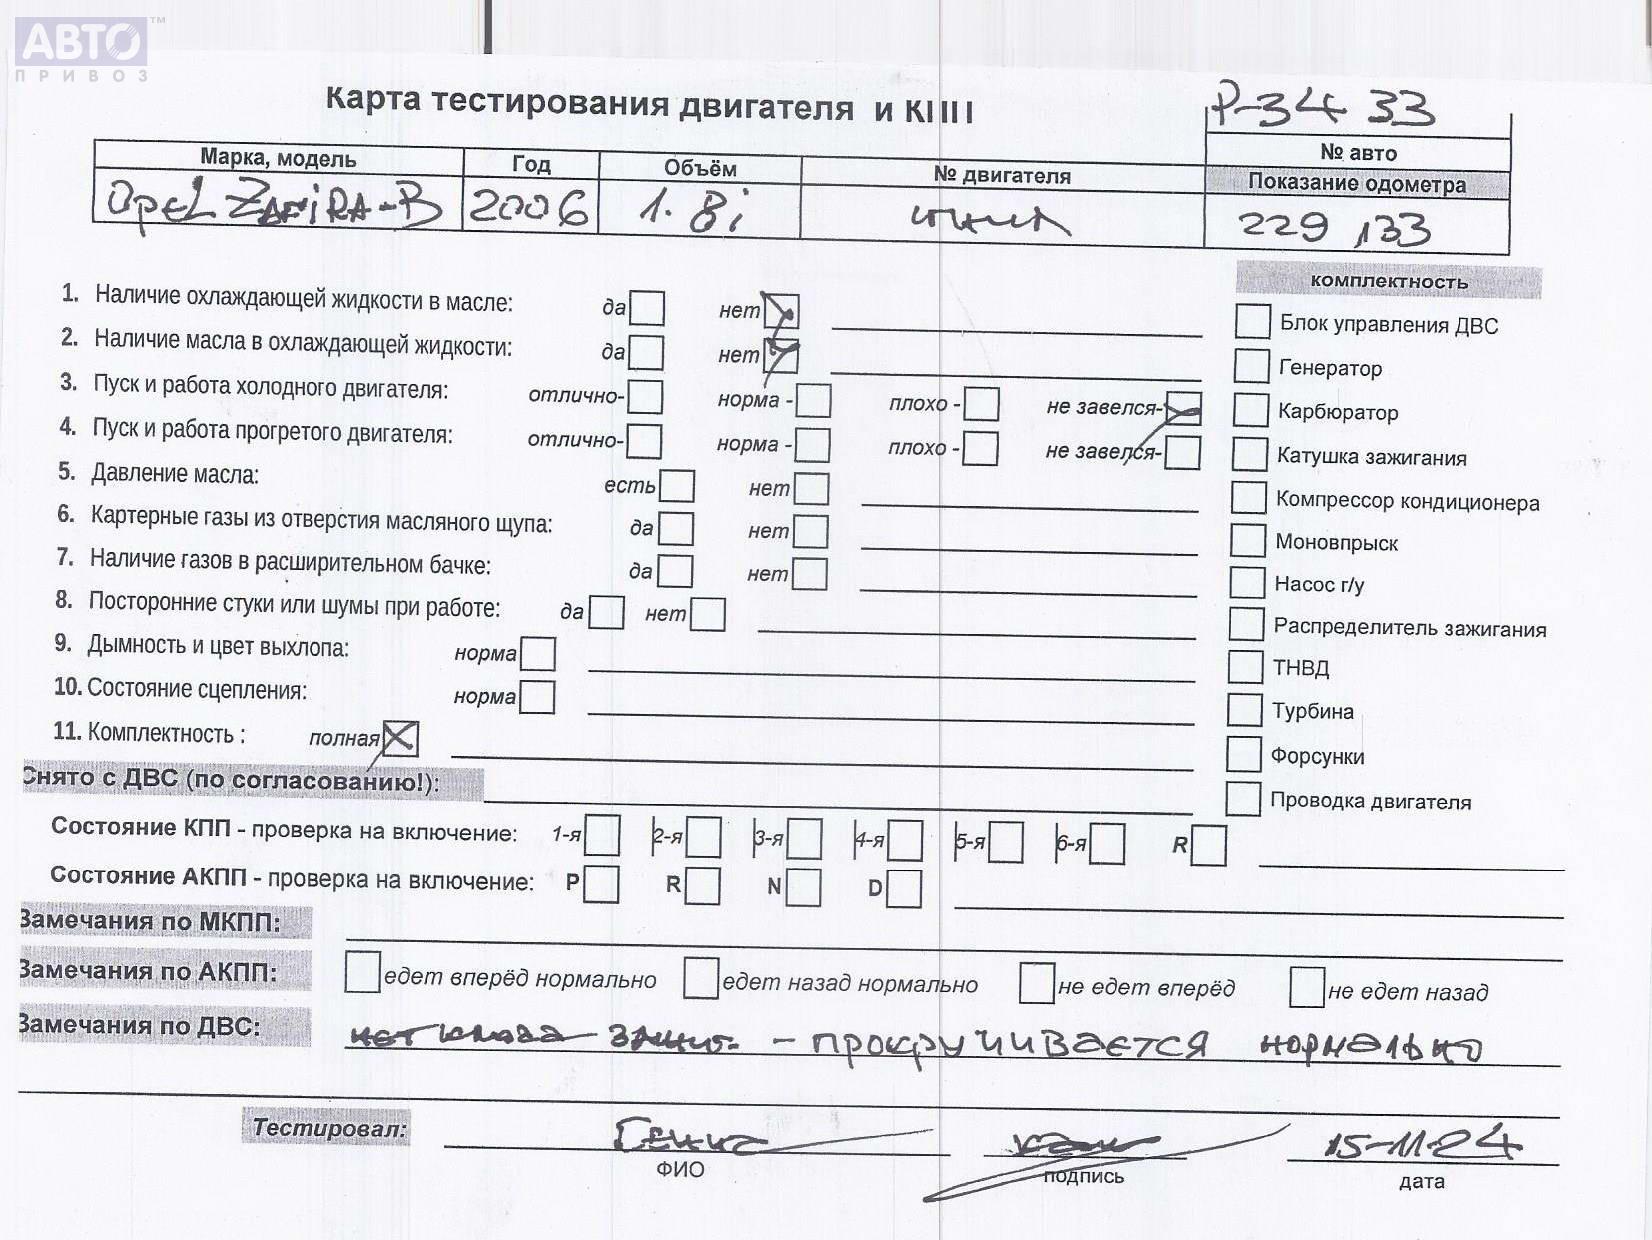 АВТО™
ПРИВОЗ
Карта тестирования двигателя и КПП
P-34 33
№ авто
Марка, модель Год Объём № двигателя Показание одометра
Opel ZAFiRA-B 2006 1.8i 229,133
комплектность
1. Наличие охлаждающей жидкости в масле: да нет
Блок управления ДВС
2. Наличие масла в охлаждающей жидкости: да нет
Генератор
3. Пуск и работа холодного двигателя: отлично- норма - плохо - не завелся-
Карбюратор
4. Пуск и работа прогретого двигателя: отлично- норма - плохо - не завелся-
Катушка зажигания
5. Давление масла: есть нет
Компрессор кондиционера
6. Картерные газы из отверстия масляного щупа: да нет
Моновпрыск
7. Наличие газов в расширительном бачке: да нет
Насос г/у
8. Посторонние стуки или шумы при работе: да нет
Распределитель зажигания
9. Дымность и цвет выхлопа: норма
ТНВД
10. Состояние сцепления: норма
Турбина
11. Комплектность : полная
Форсунки
Снято с ДВС (по согласованию!):
Проводка двигателя
Состояние КПП - проверка на включение: 1-я 2-я 3-я 4-я 5-я 6-я R
Состояние АКПП - проверка на включение: P R N D
Замечания по МКПП:
Замечания по АКПП: едет вперёд нормально едет назад нормально не едет вперёд не едет назад
Замечания по ДВС: нет ключа зажиг. - прокручивается нормально
Тестировал: 15-11-24
ФИО подпись дата